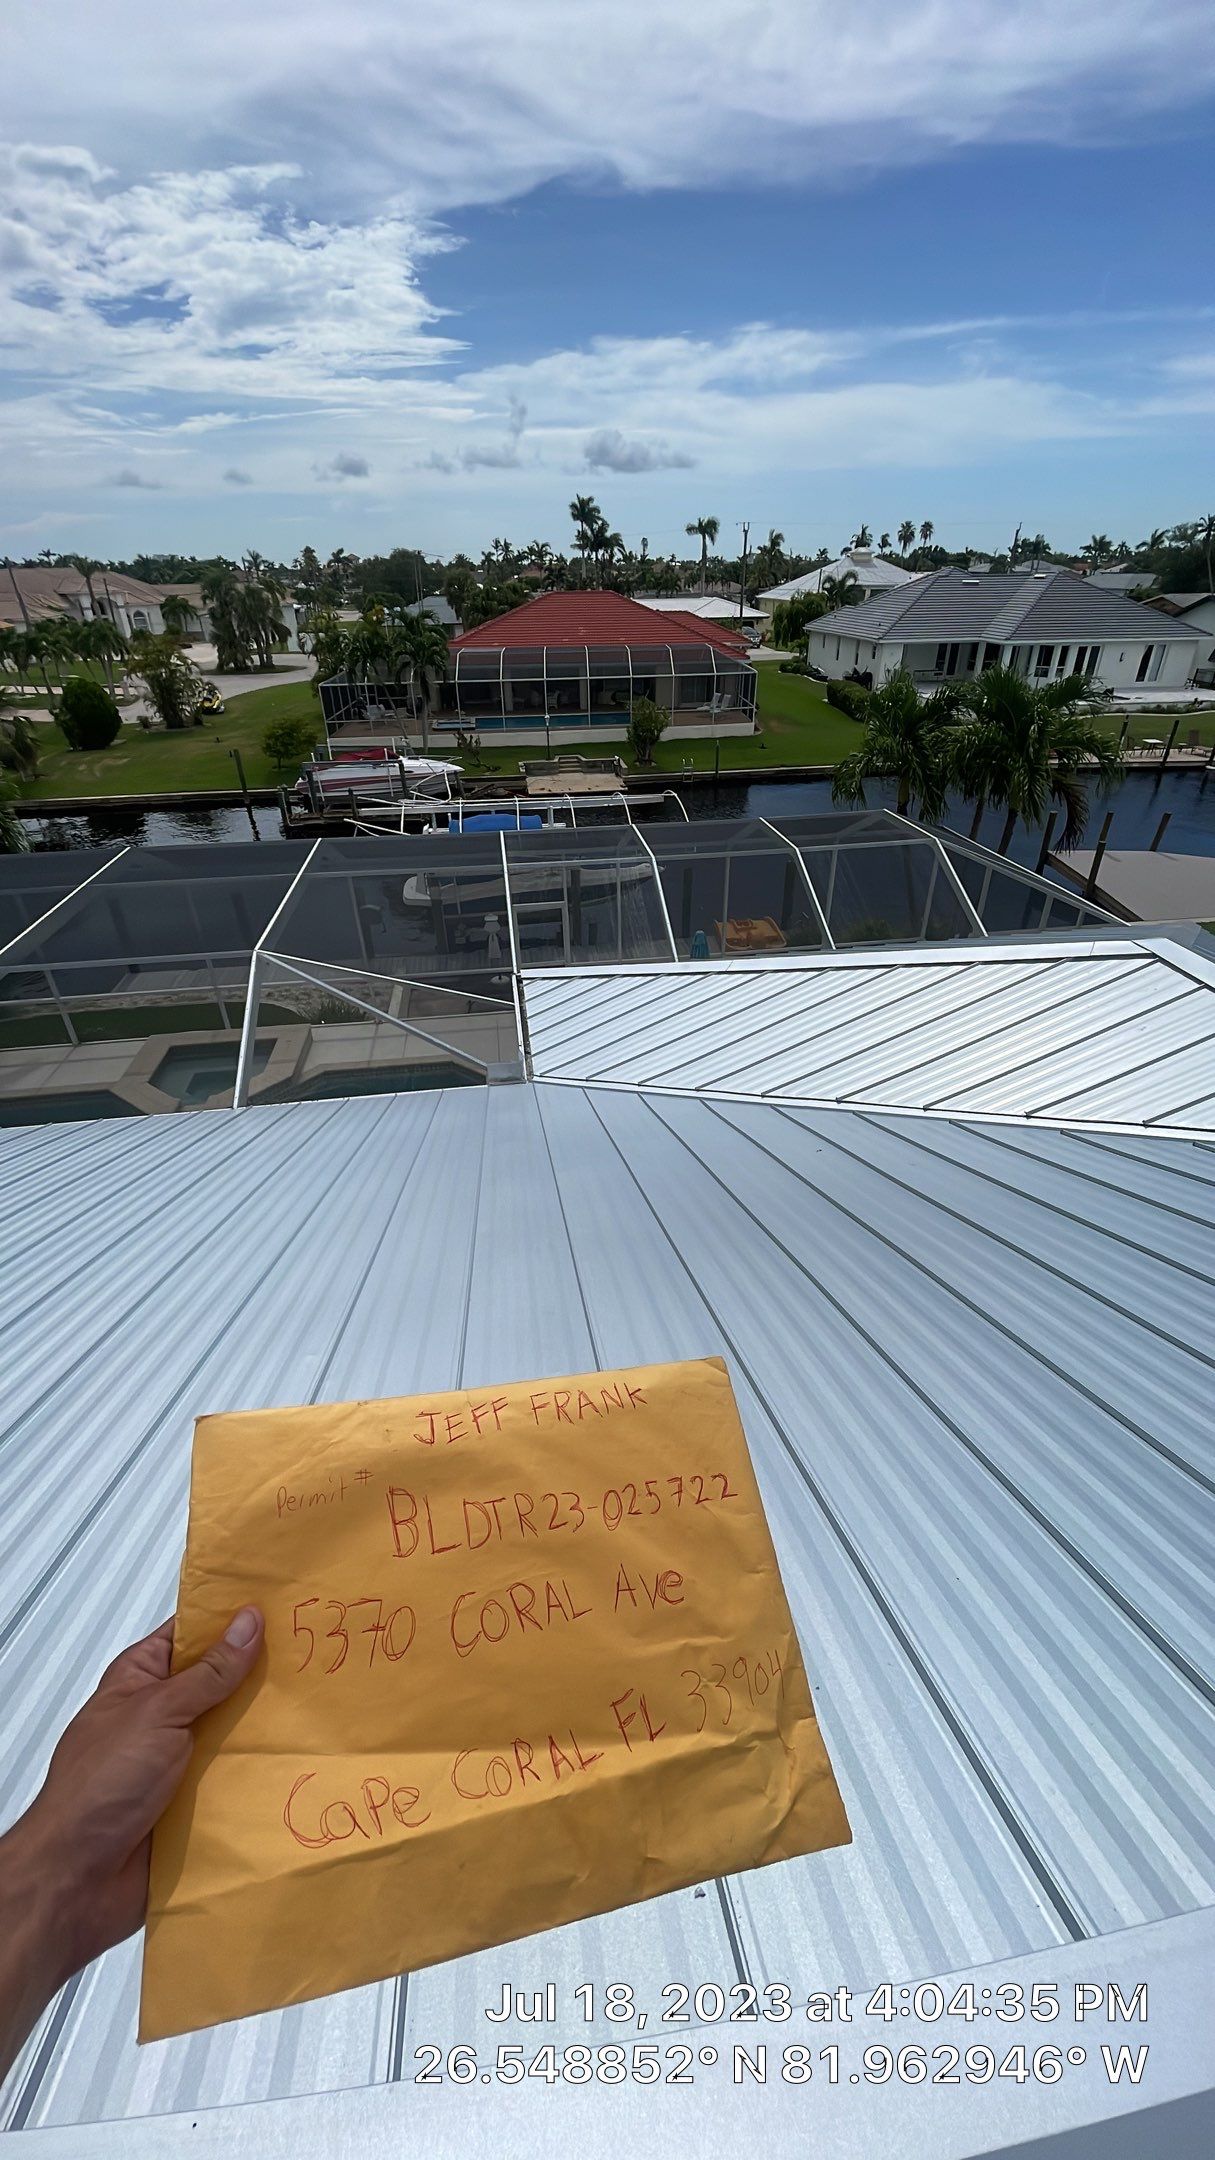 JEFF FRANK
Permit #
BLDTR23-025722
5370 CORAL Ave
CaPe CORAL FL 33904
Jul 18, 2023 at 4:04:35 PM
26.548852° N 81.962946° W